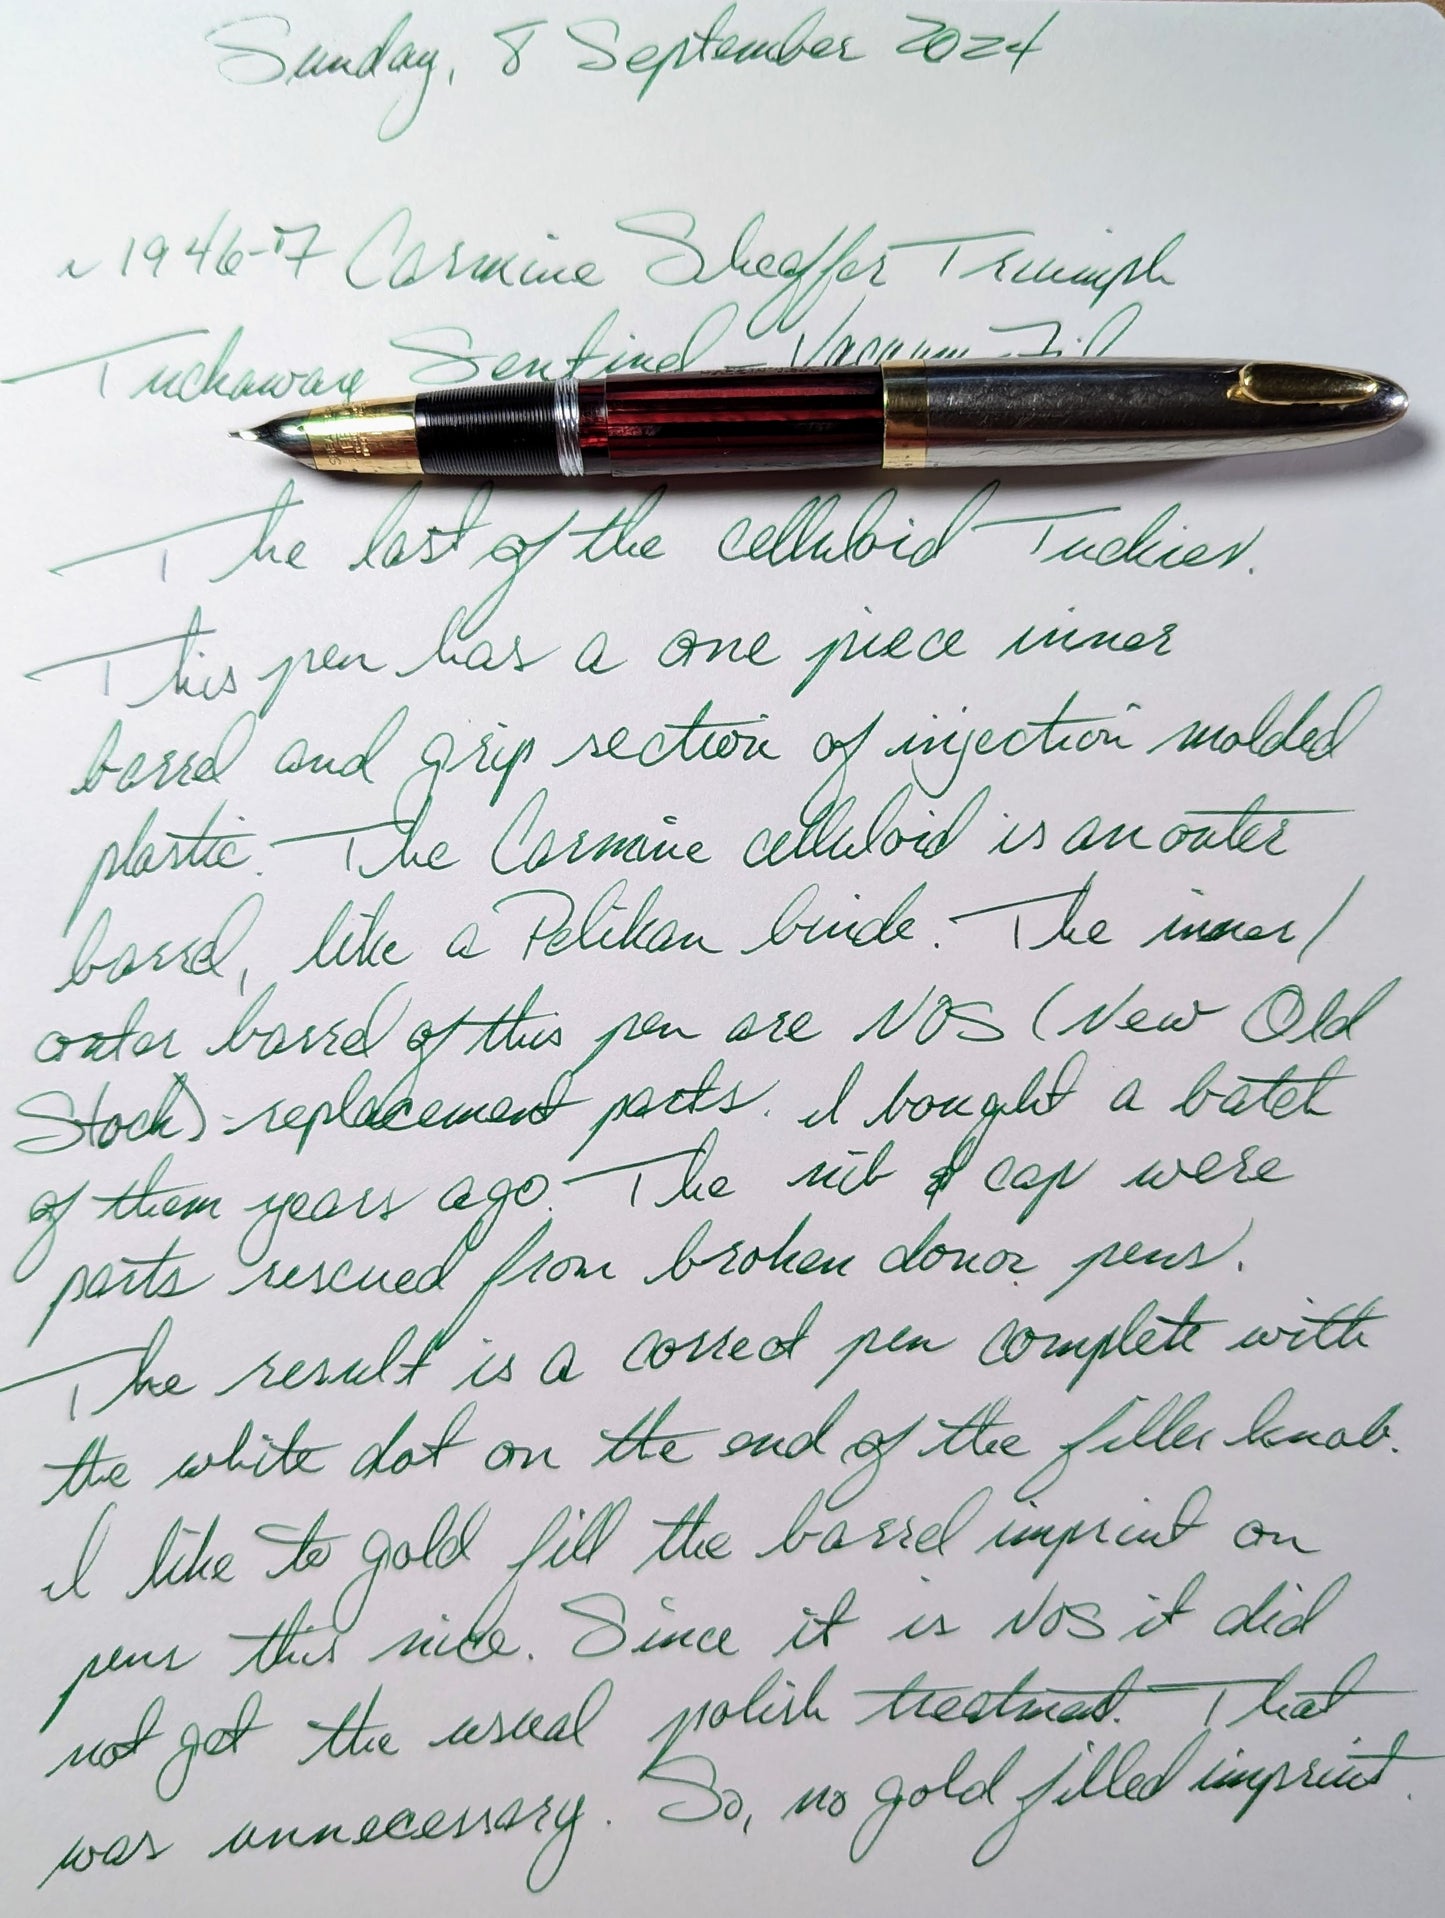 Sunday, 8 September 2024
~1946-47 Carmine Sheaffer Triumph
Tuckaway Sentinel - Vacuum-Fil
The last of the celluloid Tuckies.
This pen has a one piece inner
barrel and grip section of injection molded
plastic. The Carmine celluloid is an outer
barrel, like a Pelikan binde. The inner/
outer barrel of this pen are NOS (New Old
Stock) - replacement parts. I bought a batch
of them years ago. The nib & cap were
parts rescued from broken donor pens.
The result is a correct pen complete with
the white dot on the end of the filler knob.
I like to gold fill the barrel imprint on
pens this nice. Since it is NOS it did
not get the usual polish treatment. That
was unnecessary. So, no gold filled imprint.